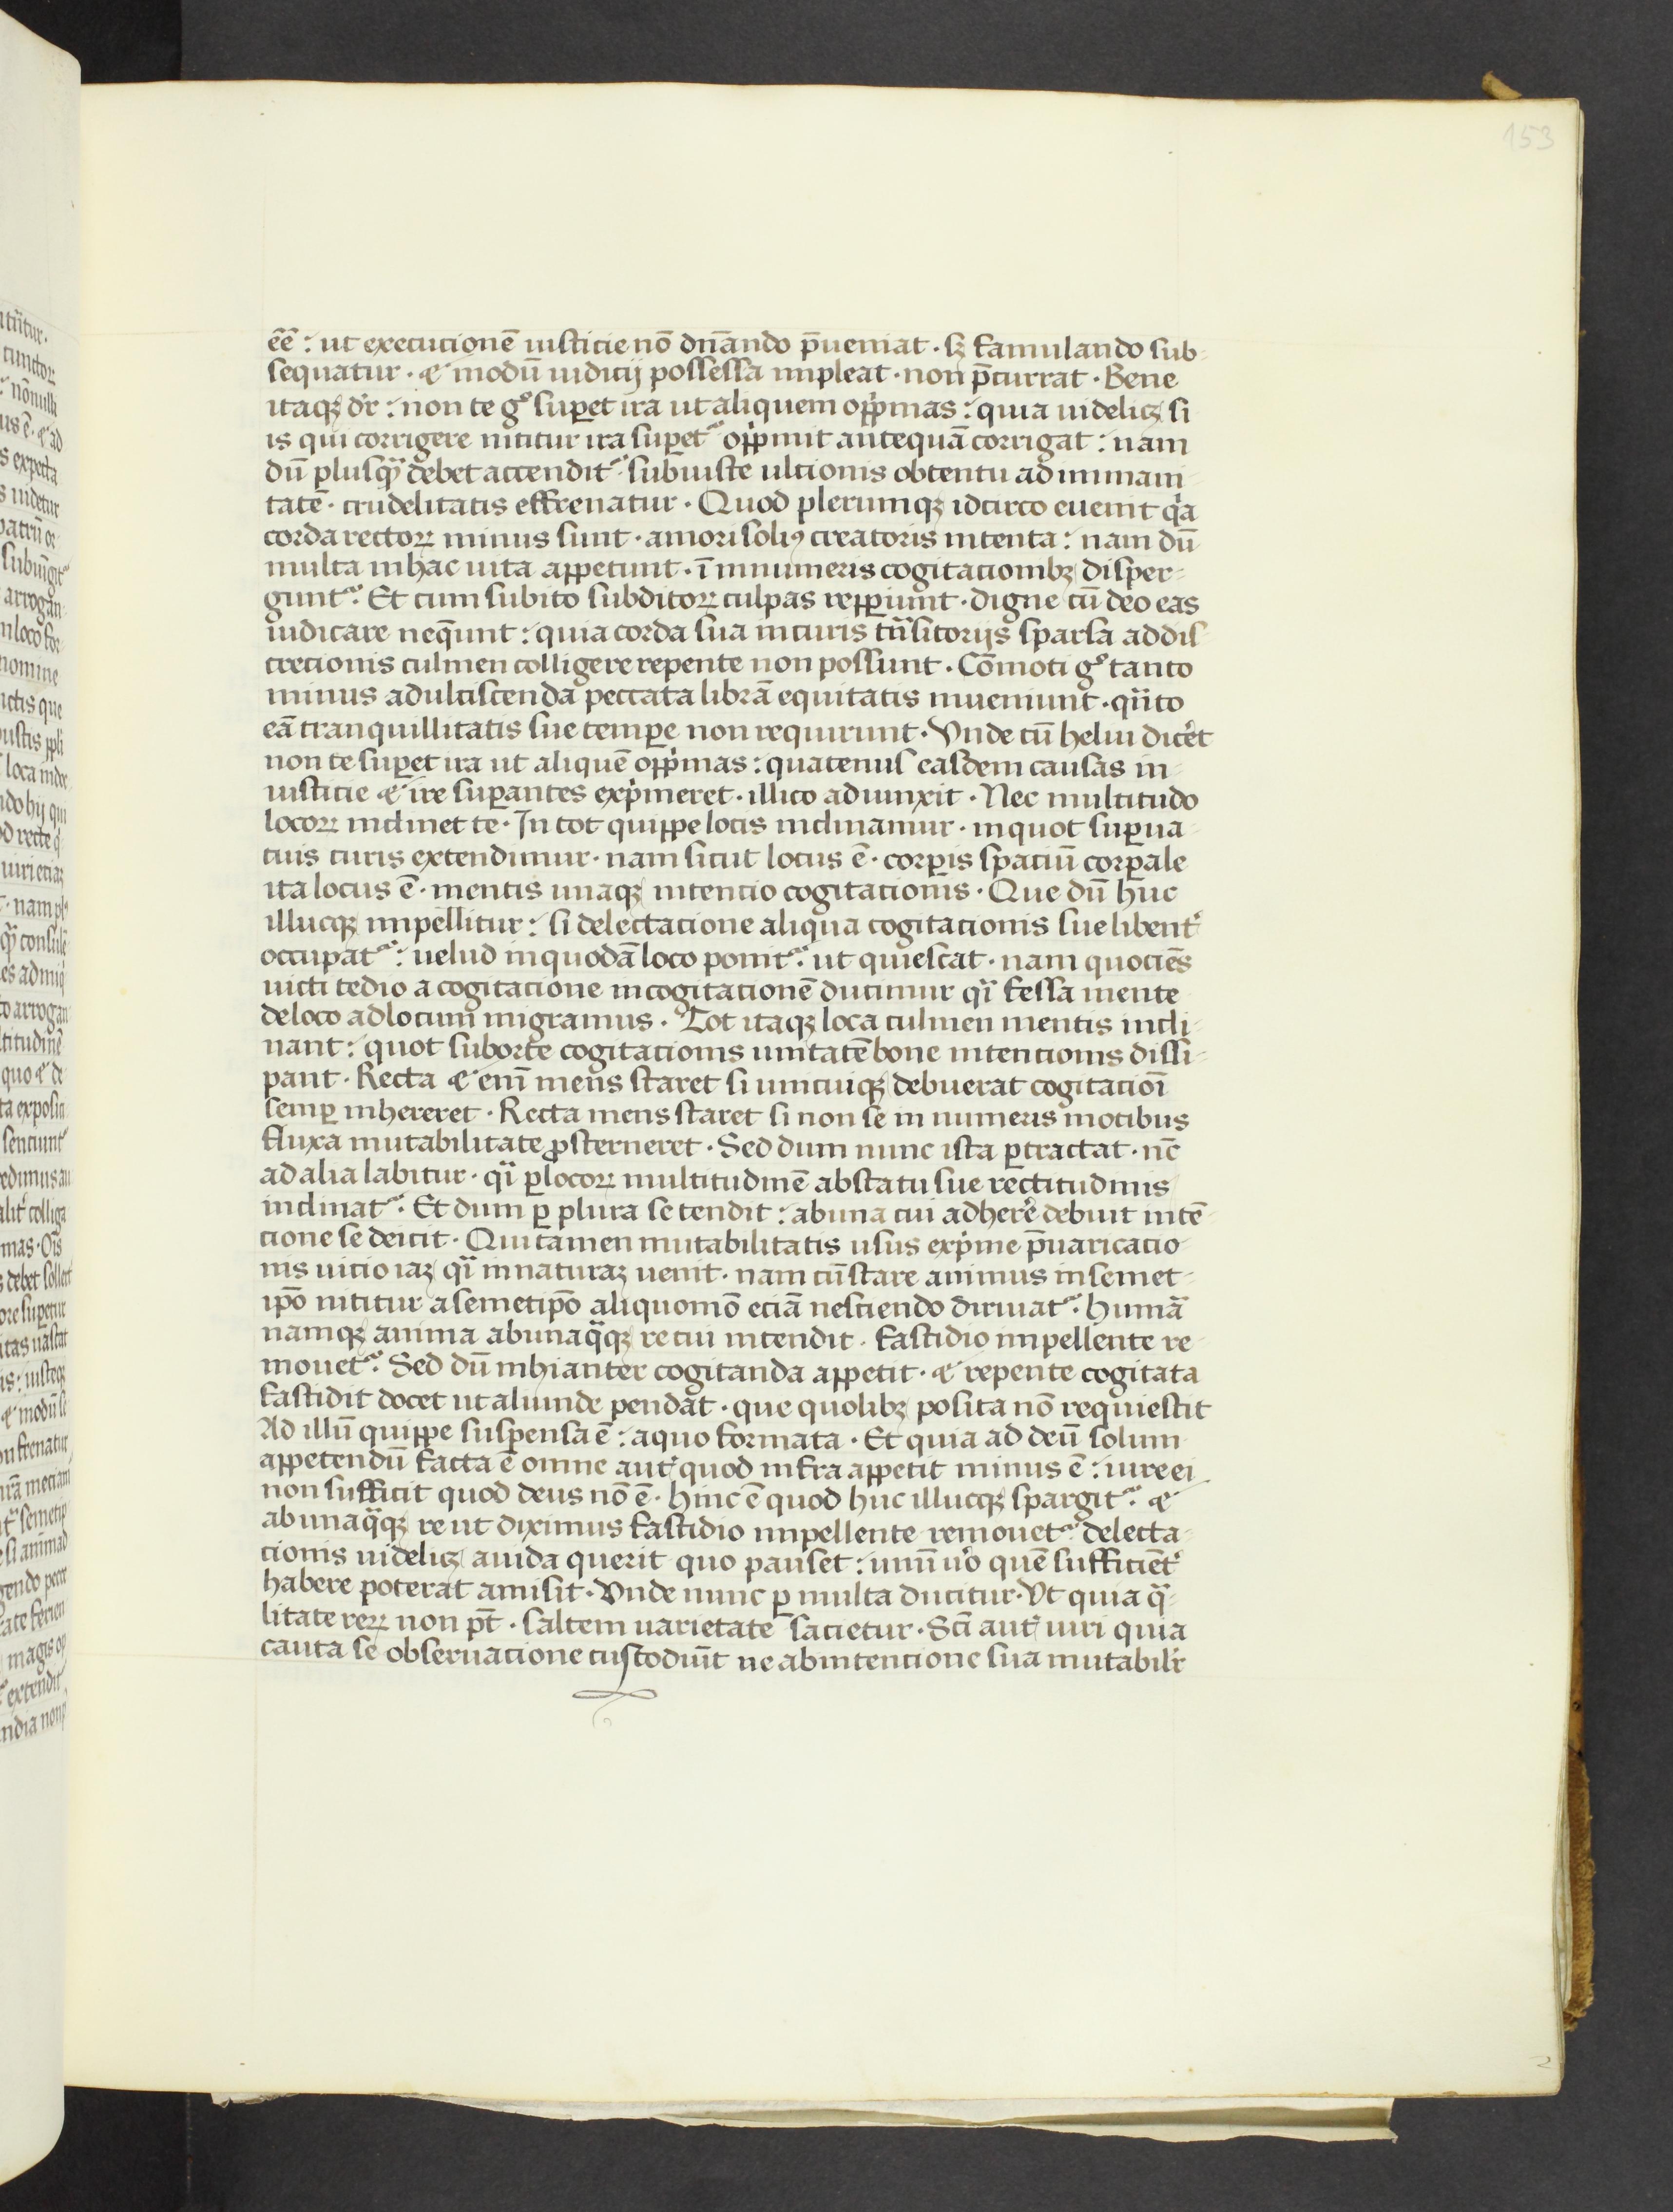 153
eē̄ : ut execucionē iusticie nō dn̄ando p̄ueniat · sꝫ famulando sub-
sequatur · & modū iudicij possessa impleat · non p̄currat · Bene
itaqꝫ dr̄ : non te gͦ suꝑet ira ut aliquem opp̍mas : quia uidelicꝫ si
is qui corrigere nititur ira suꝑet᷑ opp̍mit antequā corrigat : nam
dū plusqͣ debet accendit᷑ : sub iuste ulcionis obtentu ad immani-
tatē · crudelitatis effrenatur · Quod plerumqꝫ idcirco euenit qͥa
corda rectoꝝ minus sunt · amori soliꝰ creatoris intenta : nam dū
multa in hac uita appetunt · ī innumeris cogitacionibꝫ disper-
gunt᷑ : Et cum subito subditoꝝ culpas repꝑiunt · digne cū deo eas
iudicare neq̄unt : quia corda sua in curis trn̄sitorijs sparsa ad dis-
crecionis culmen colligere repente non possunt . Cōmoti gͦ tanto
minus ad ulciscenda peccata librā equitatis inueniunt · qͣnto
eā tranquillitatis sue temꝑe non requirunt · Vnde cū heliu dicēt
non te suꝑet ira ut aliquē opp̍mas : quatenus easdem causas in-
iusticie & ire suꝑantes exp̍meret · illico adiunxit · Nec multitudo
locoꝝ inclinet te · In tot quippe locis inclinamur · in quot suꝑua-
cuis curis extendimur · nam sicut locus ē · corꝑis spaciū corꝑale
ita locus ē · mentis unaqꝫ intencio cogitacionis · Que dū huc
illucqꝫ impellitur : si delectacione aliqua cogitacionis sue libent᷑
occupat᷑ : uelud in quodā loco ponit᷑ : ut quiescat · nam quociēs
uicti tedio a cogitacione in cogitacionē ducimur qͣi fessa mente
de loco ad locum migramus · Tot itaqꝫ loca culmen mentis incli-
nant : quot suborte cogitacionis unitatē bone intencionis dissi-
pant · Recta & enī mens staret si unicuiqꝫ debuerat cogitacioī
semꝑ inhereret · Recta mens staret si non se in numeris motibus
fluxa mutabilitate ꝓsterneret · Sed dum nunc ista ꝑtractat · nc̄
ad alia labitur · qͣi ꝑ locoꝝ multitudinē ab statu sue rectitudinis
inclinat᷑ : Et dum ꝑ plura se tendit : ab una cui adherē debuit intē-
cione se deicit · Qui tamen mutabilitatis usus exp̍me p̄uaricacio-
nis uicio iaꝫ qͣi in naturaꝫ uenit · nam cū stare animus in semet-
ip̄o nititur a semetip̄o aliquomō eciā nesciendo diriuat᷑ : humā
namqꝫ anima ab unaqͣqꝫ re cui intendit · fastidio impellente re-
mouet᷑ : Sed dū inhianter cogitanda appetit · & repente cogitata
fastidit docet ut aliunde pendāt · que quolibꝫ posita nō requiescit
Ad illū quippe suspensa ē : a quo formata · Et quia ad deū solum
appetendū facta ē omne aut᷑ quod infra appetit minus ē : iure ei
non sufficit quod deus nō ē · hinc ē quod huc illucqꝫ spargit᷑ : &
ab unaqͣqꝫ re ut diximus fastidio impellente remouet᷑ delecta-
cionis uidelicꝫ auida querit quo pauset : unū uͦo quē sufficiēt᷑
habere poterat amisit · Vnde nunc ꝑ multa ducitur · Vt quia qͣ-
litate reꝝ non pt̄ · saltem uarietate sacietur · Scī aut᷑ uiri quia
cauta se obseruacione custodiūt ne ab intencione sua mutabilr̄